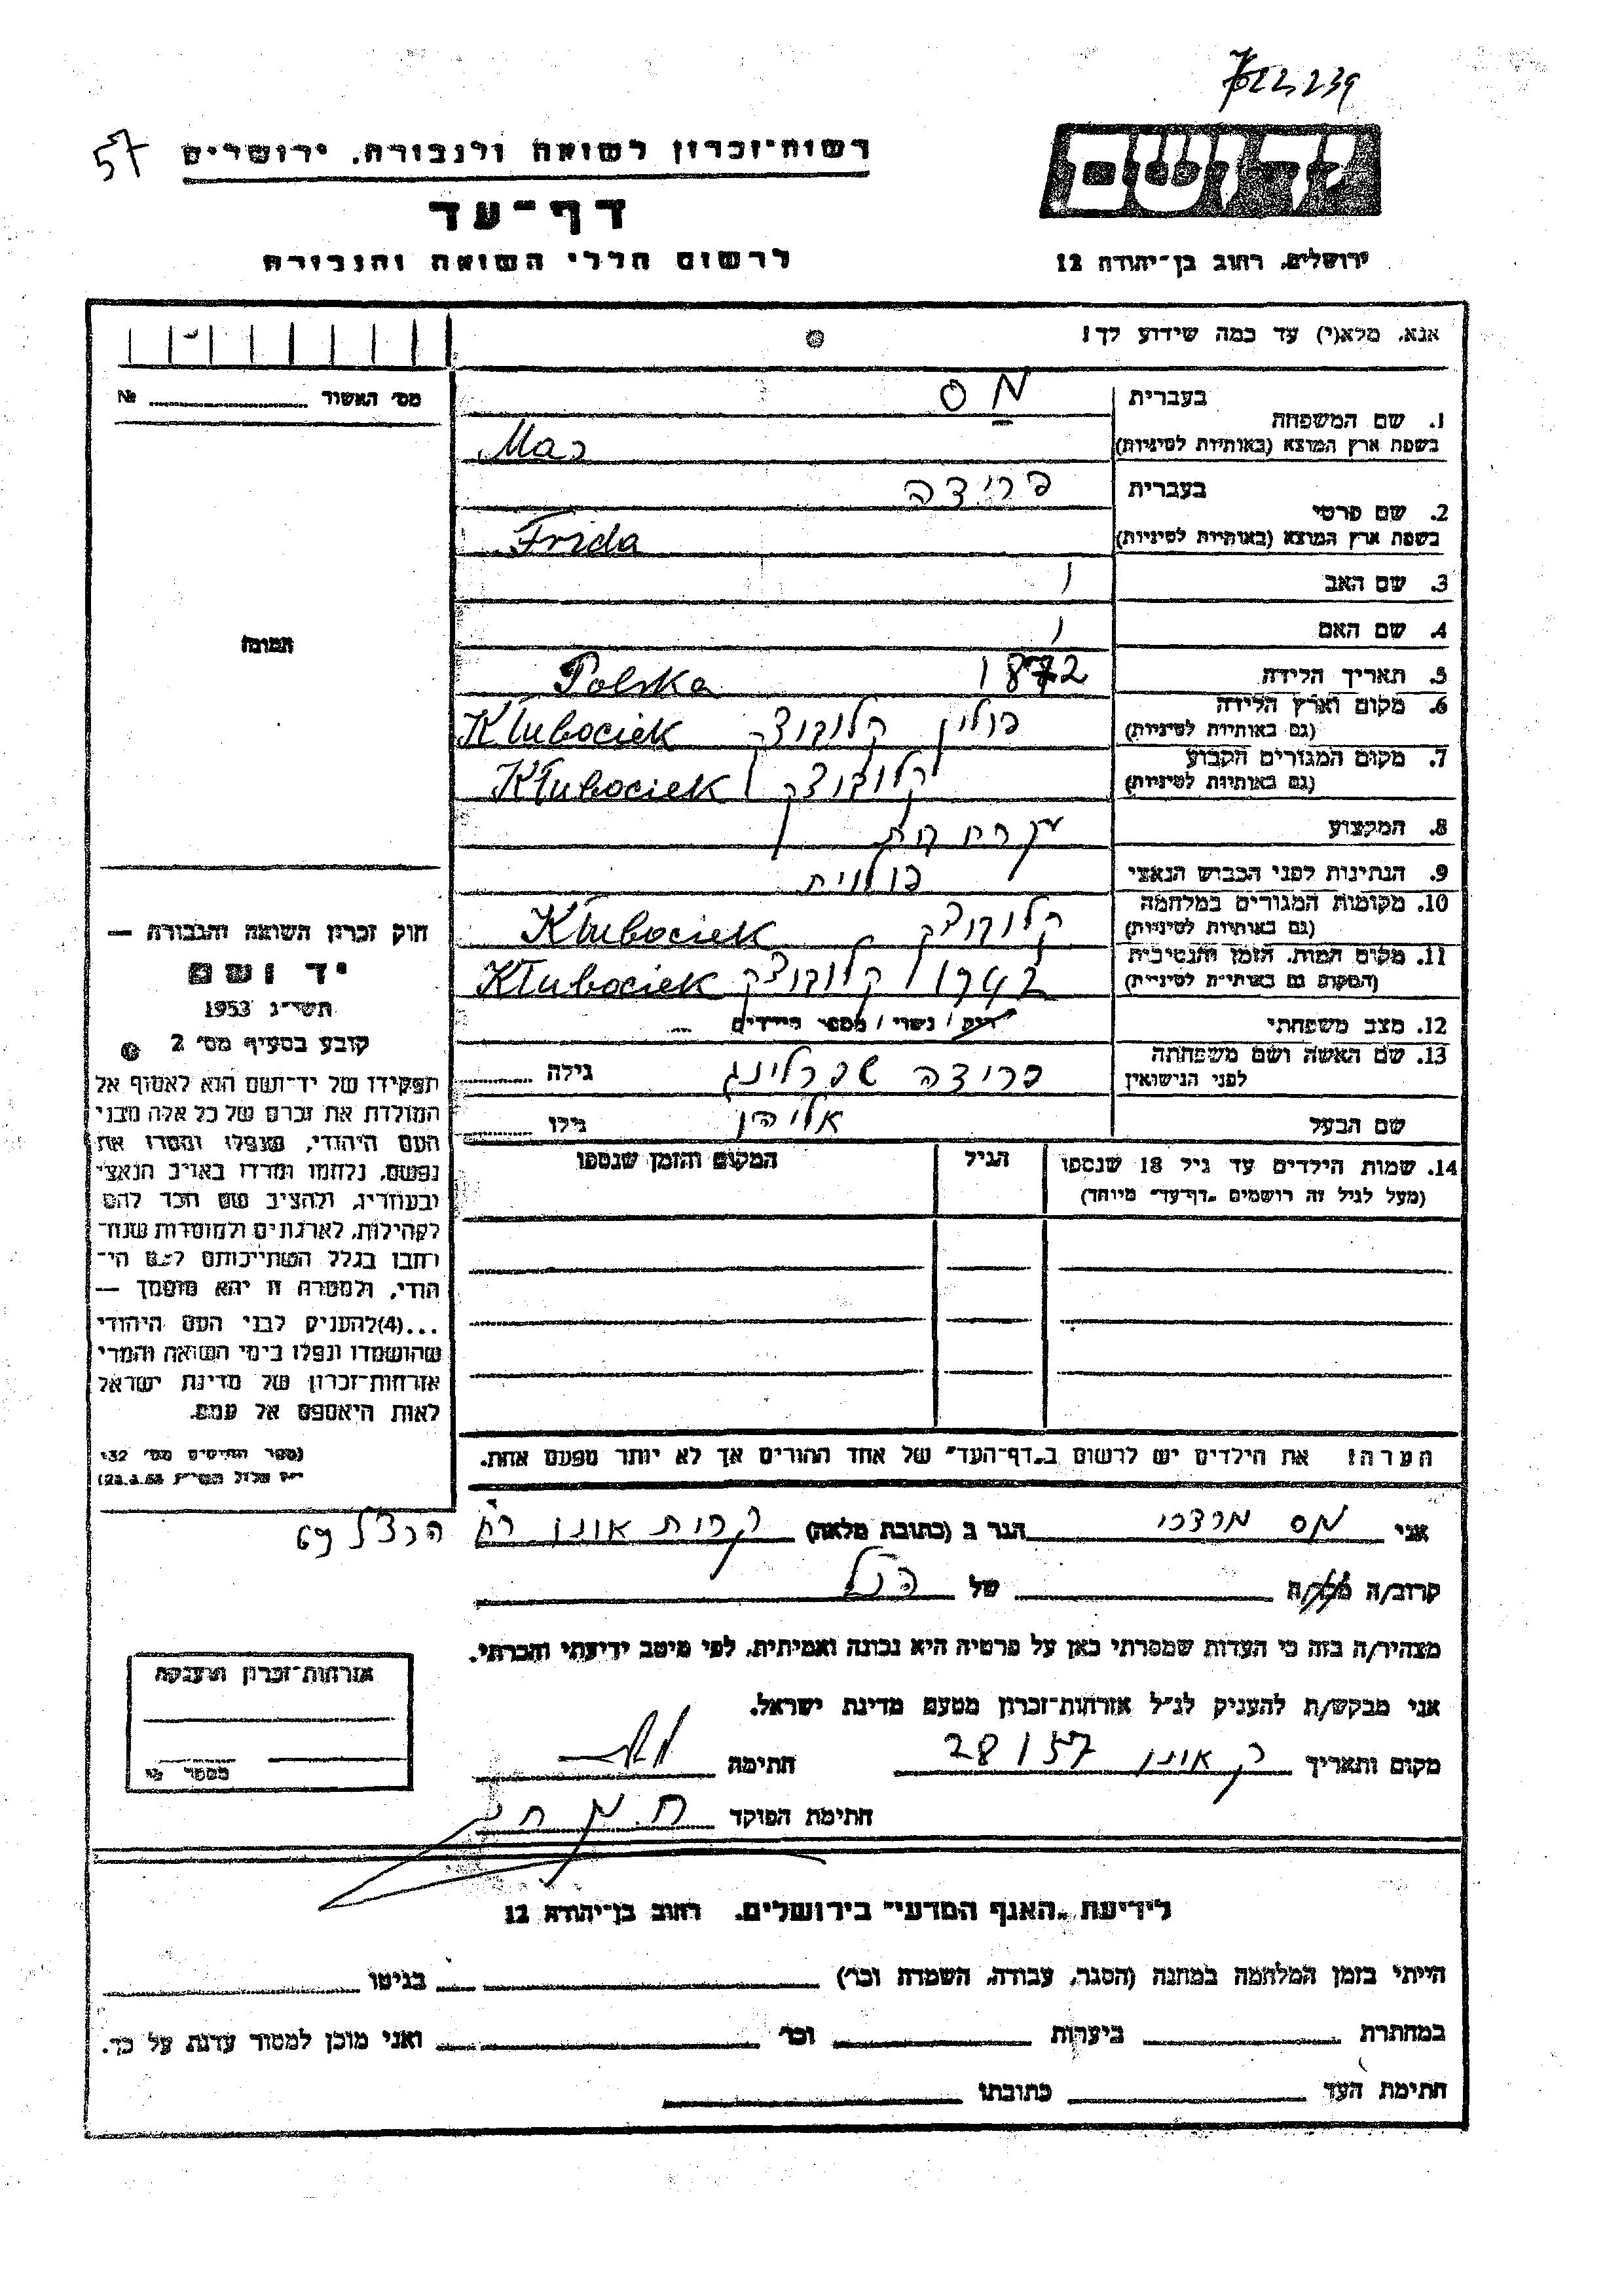 57
רשות-זכרון לשואה ולגבורה, ירושלים
דף-עד
לרשום חללי השואה והגבורה
ירושלים, רחוב בן-יהודה 12
אנא, מלא(י) עד כמה שידוע לך!
מס' האשור № 
1. שם המשפחה
בעברית מס
בשפת ארץ המוצא (באותיות לטיניות) Mas
2. שם פרטי
בעברית פרידה
בשפת ארץ המוצא (באותיות לטיניות) Frida
3. שם האב
4. שם האם
5. תאריך הלידה 1872 Polska
6. מקום וארץ הלידה פולין קלובוצק Klubociek
(גם באותיות לטיניות)
7. מקום המגורים הקבוע קלובוצק Kłubociek
(גם באותיות לטיניות)
8. המקצוע עקרת בית
9. הנתינות לפני הכבוש הנאצי פולנית
10. מקומות המגורים במלחמה קלובוצק Klubociek
(גם באותיות לטיניות)
11. מקום המות, הזמן והנסיבות 1942 קלובוצק Kłubociek
(המקום גם באותיות לטיניות)
12. מצב משפחתי רוק / נשוי / מספר הילדים
13. שם האשה ושם משפחתה פרידה שפרלינג גילה
לפני הנישואין
שם הבעל גילו
14. שמות הילדים עד גיל 18 שנספו הגיל המקום והזמן שנספו
(מעל לגיל זה רושמים "דף-עד" מיוחד)
הערה: את הילדים יש לרשום ב"דף-העד" של אחד ההורים אך לא יותר מפעם אחת.
תמונה
חוק זכרון השואה והגבורה —
יד ושם
תשי"ג 1953
קובע בסעיף מס' 2
תפקידו של יד-ושם הוא לאסוף אל
המולדת את זכרם של כל אלה מבני
העם היהודי, שנפלו ומסרו את
נפשם, נלחמו ומרדו באויב הנאצי
ובעוזריו, ולהציב שם וזכר להם
לקהילות, לארגונים ולמוסדות שנח-
רבו בגלל השתייכותם לעם הי-
הודי, ולמטרה זו יהא מוסמך —
...(4)להעניק לבני העם היהודי
שהושמדו ונפלו בימי השואה והמרי
אזרחות-זכרון של מדינת ישראל
לאות היאספם אל עמם.
(ספר החוקים מס' 132
אני מס מרדכי הגר ב (כתובת מלאה) קרית אונו רח הרצל 69
קרוב/ה מכר/ה של הנ"ל
מצהיר/ה בזה כי העדות שמסרתי כאן על פרטיה היא נכונה ואמיתית, לפי מיטב ידיעתי והכרתי.
אני מבקש/ת להעניק לנ"ל אזרחות-זכרון מטעם מדינת ישראל.
מקום ותאריך ק אונו 28/57 חתימה
חתימת הפוקד
אזרחות-זכרון הוענקה
מספר
לידיעת "האגף המדעי" בירושלים, רחוב בן-יהודה 12
הייתי בזמן המלחמה במחנה (הסגר, עבודה, השמדה וכו') בגיטו
במחתרת ביערות וכו' ואני מוכן למסור עדות על כך.
חתימת העד כתובתו